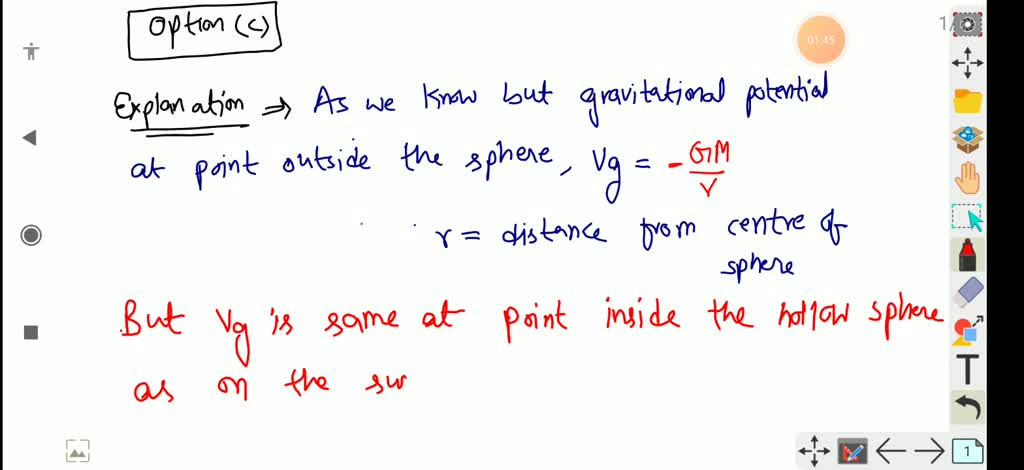 Option (c)
1/
01:45
Explanation ⇒ As we know but gravitational potential
at point outside the sphere, Vg = - GM/r
r = distance from centre of
sphere
But Vg is same at point inside the hollow sphere
as on the sur
T
1